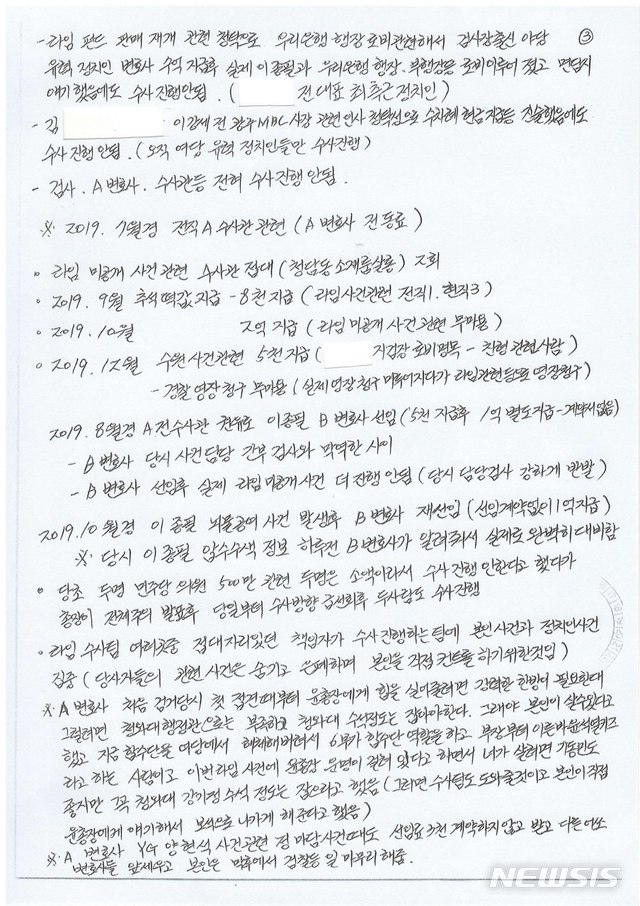 - 라임 펀드 판매 재개 관련 청탁으로 우리은행 행장 로비관련해서 검사장출신 야당 ③
유력 정치인 변호사 수억 지급후 실제 이종필과 우리은행 행장. 부행장등 로비이루어 졌고 면담시
얘기했음에도 수사 진행안됨. ( 전 대표 최측근 정치인)
- 김 이강제 전 광주MBC사장 관련 인사 청탁성으로 수차례 현금지급등 진술했음에도
수사 진행 안됨. (오직 여당 유력 정치인들만 수사진행)
- 검사. A변호사. 수사관등 전혀 수사진행 안됨.
※ 2019. 7월경 전직 A수사관 관련 (A변호사 전동료)
o 라임 미공개 사건 관련 수사관 접대 (청담동소재룸살롱) 2회
o 2019. 9월 추석 떡값 지급 - 8천 지급 (라임사건관련 전직1. 현직3)
o 2019. 10월 2억 지급 (라임 미공개 사건 관련 무마용)
o 2019. 12월 수원사건관련 5천 지급 ( 지검장 로비명목 - 친형 관련사람)
- 경찰 영장 청구 무마용 (실제 영장청구 미루어지다가 라임관련등으로 영장청구)
2019. 8월경 A전수사관 권유로 이종필 B변호사 선임 (5천 지급후 1억 별도지급 - 계약서없음)
- B변호사 당시 사건담당 간부 검사와 막역한 사이
- B변호사 선임후 실제 라임 미공개사건 더 진행 안됨 (당시 담당검사 강하게 반발)
2019. 10월경 이종필 뇌물공여 사건 발생후 B변호사 재선임 (선임계약없이 1억지급)
※ 당시 이종필 압수수색 정보 하루전 B변호사가 알려줘서 실제로 완벽히대비함
o 당초 두명 민주당 의원 500만 관련 두명은 소액이라서 수사진행 안한다고 했다가
총장이 전체주의 발표후 당일부터 수사방향 급선회후 두사람도 수사진행
o 라임 수사팀 여러차중 접대자리있던 책임자가 수사진행하는 팀에 본인사건과 정치인사건
집중 (당사자들의 관련 사건은 숨기고 은폐하며 본인을 직접 컨트롤하기위한것임)
※ A변호사 처음 검거당시 첫 접견때부터 윤총장에게 힘을 실어줄려면 강력한 한방이 필요한데
그럴려면 청와대행정관으로는 부족하고 청와대 수석정도는 잡아야한다. 그래야 본인이 살수있다고
했고 지금 합수단을 여당에서 해체해버려서 6부가 합수단 역할을하고 부장부터 이른바윤석열키즈
라고 하는 사람이고 이번라임 사건에 윤총장 운명이 걸려 있다고 하면서 너가 살려면 기동민도
좋지만 꼭 청와대 강기정 수석 정도는 잡으라고 했음 (그러면 수사팀도 도와줄것이고 본인이 직접
윤총장에게 얘기해서 보석으로 나가게 해준다고 했음)
※ A변호사 YG양현석 사건관련 정마담사건때도 선임료3천 계약하지않고 받고 다른 어쏘
변호사들 앞세우고 본인은 막후에서 검찰등 일 마무리 해줌.
NEWSIS